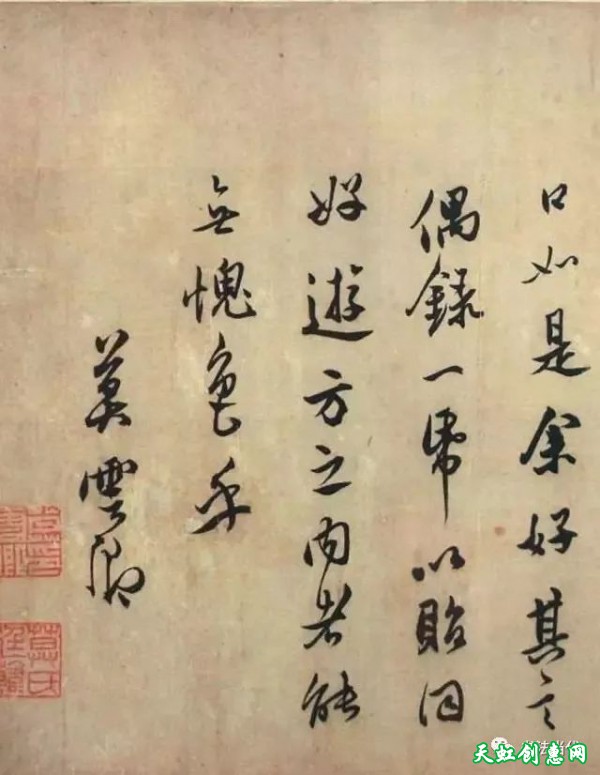 口如是余好其言
偶錄一帋以貽同
好遊方之內者能
無愧色乎
莫雲卿
天虹创意网